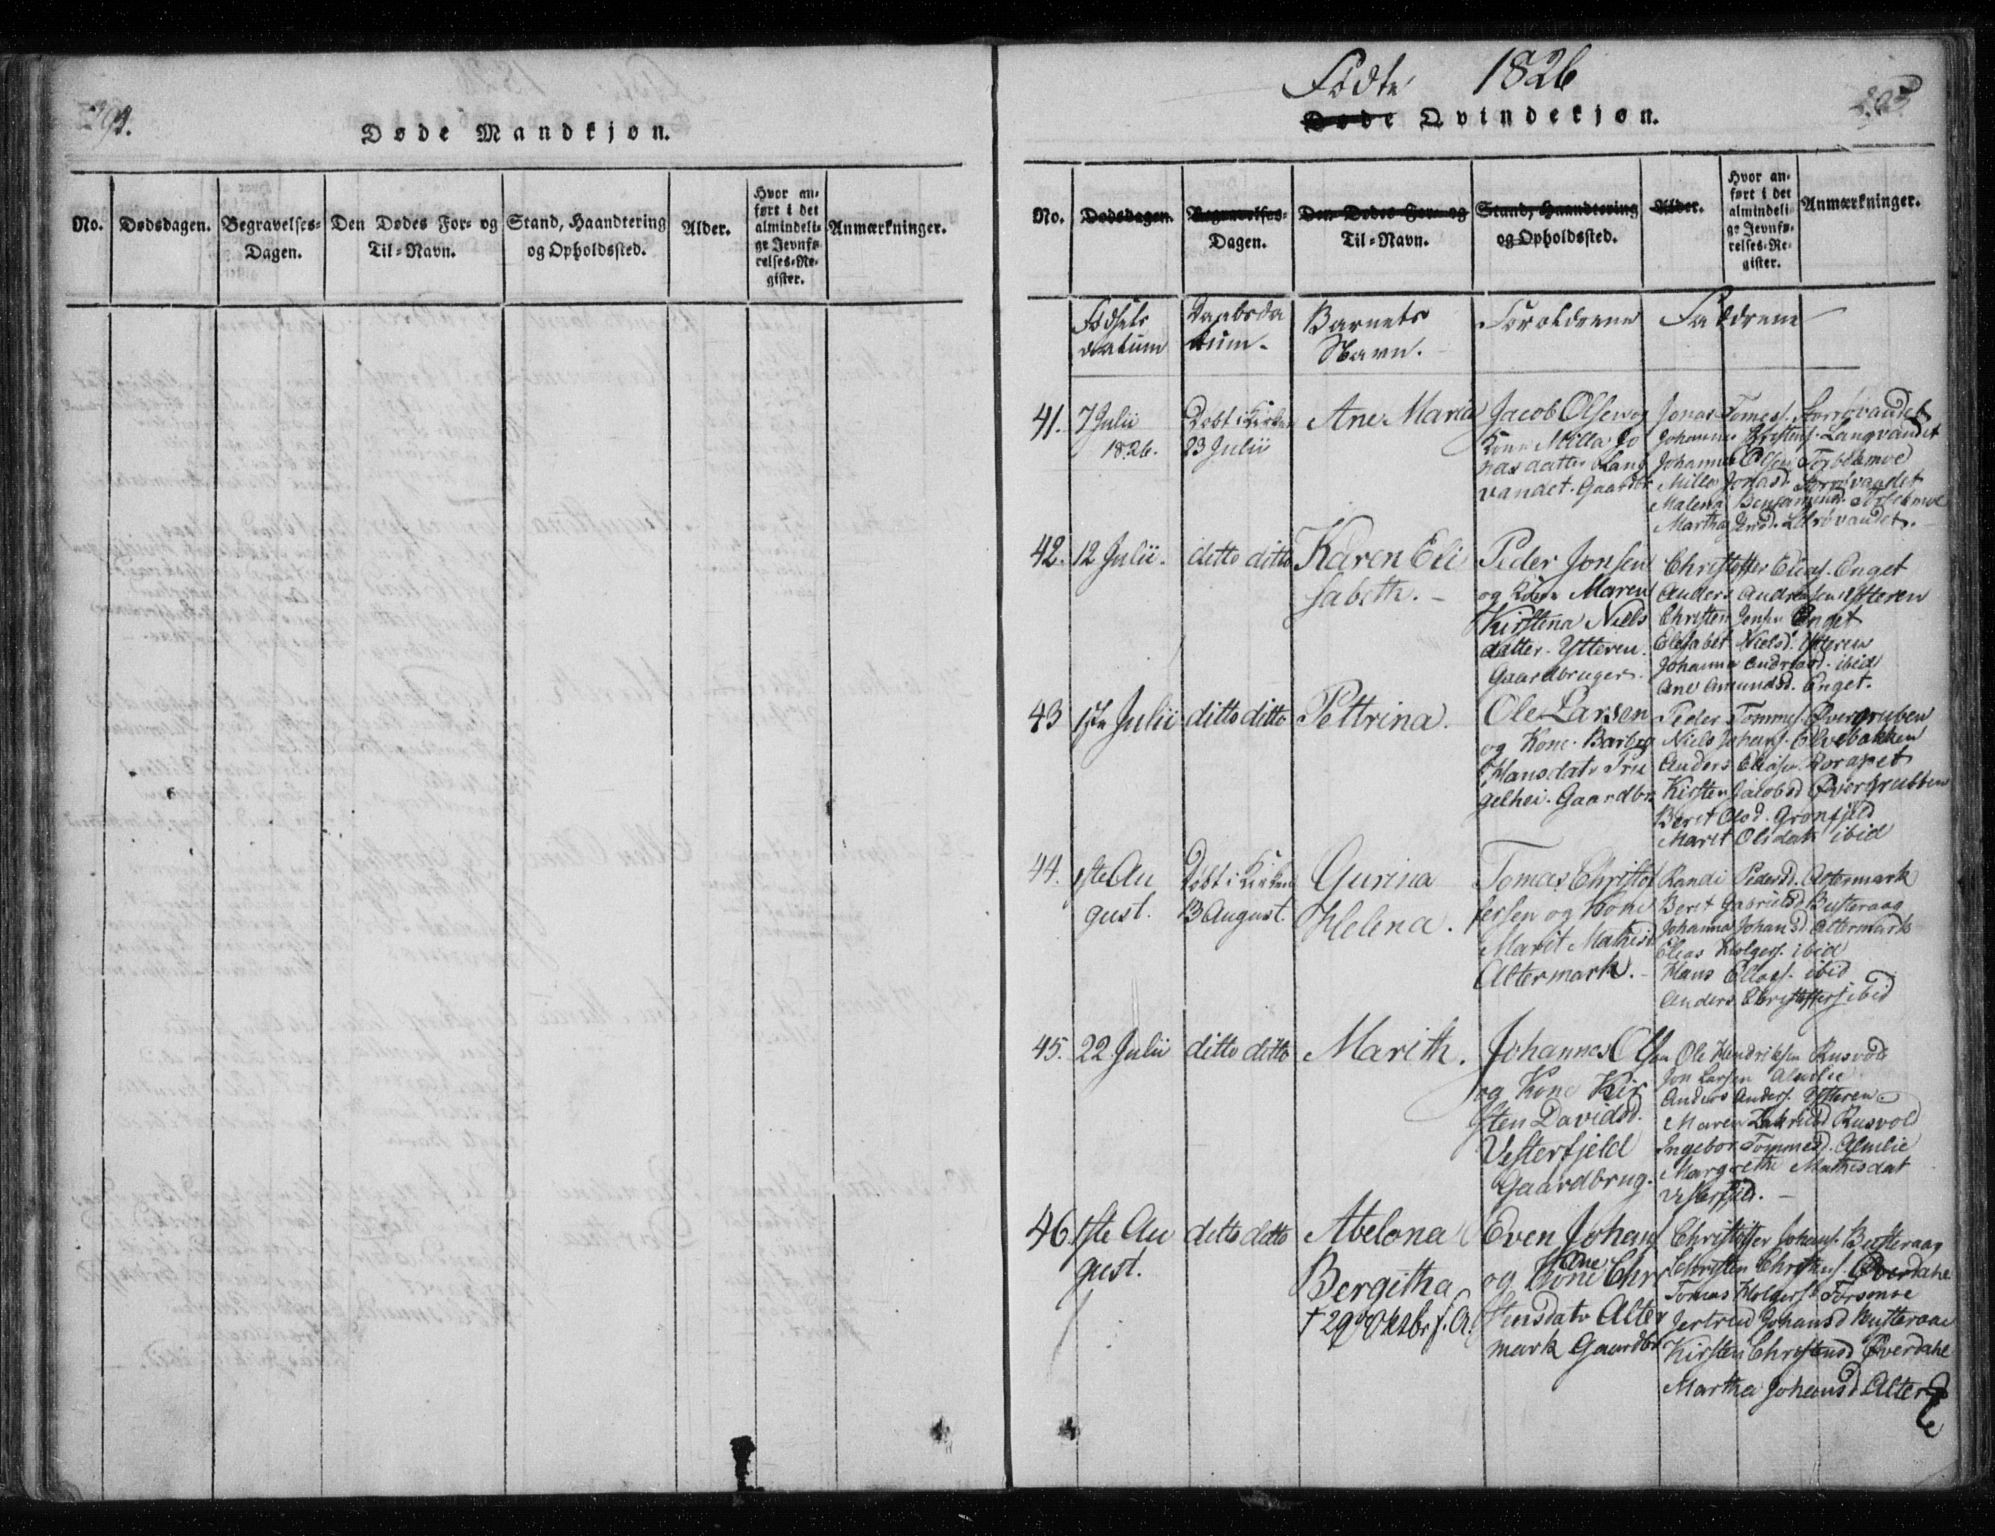 Døde Mandkjøn.
No.
Dødsdagen.
Begravelses-
Dagen.
Den Dødes For- og
Til-Navn.
Stand, Haandtering
og Opholdssted.
Alder.
Hvor an-
ført i det
almindeli-
ge Jevnfø-
relses-Re-
gister.
Anmærkninger.
Fødte 1826
Døde Qvindekjøn.
No.
Dødsdagen.
Begravelses-
Dagen.
Den Dødes For- og
Til-Navn.
Stand, Haandtering
og Opholdssted.
Alder.
Hvor an-
ført i det
almindeli-
ge Jevnfø-
relses-Re-
gister.
Anmærkninger.
Fødsels
datum
Daabsda
tum.
Barnets
Navn.
Forældrene
Faddrene
41.
7 Julii
1826.
Døbt i Kirken
23 Julii
Ane Maria
Jacob Olsen og
Kone Milla Jo
nasdatter Lang
vandet. Gaardbr
Jonas Tomes. Storrøvandet
Johannes Kristens. Langvandet
Johannes Olsen Forbekmoe
Milla Jonasd. Storrøvandet
Malena Benjamind. Forbekmoe
Martha Jensd.
42.
12 Julii.
ditto ditto
Karen Eli
sabeth.
Peder Jonsen
og Kone Maren
Kirstina Niels
datter. Ytteren.
Gaardbruger.
Christoffer Elias. Enget
Anders Andersen Ytteren
Christen Jensen Enget
Elisabet Nielsd. Ytteren
Johanna Andersd. ibid
Ane Amundsd. Enget.
43
Julii
ditto ditto
Pettrina.
Ole Larsen
og Kone. Barbro
Hansdatr
gelhei. Gaardbr.
Peder Tommes. Øvergruben
Niels Johans. Elvebakken
Anders Elias.
Kirsten Jacobsd Øvergrubben
Beret Olsd. Grønfjeld
Marit Olsdatr ibid
44.
1ste Au
gust.
Døbt i Kirken
13 August.
Gurina
Helena.
Tomas Christof
fersen og Kone
Marit Mathisd
Altermark.
Randi Pedersd. Altermark
Beret Gabrielsd Busteraag
Johanna Johansd. Altermark
Elias Holgers. ibid
Hans Elias. ibid
Anders Christoffers ibid
45.
22 Julii
ditto ditto
Marith.
Johannes Olsen
og Kone Kir
sten Davidsd.
Vesterfjeld
Gaardbrug.
Ole Hendriksen Rusvold
Jon Larsen Almlie
Anders Anders. Ytteren
Maren Rusvold
Ingebor Tommesd. Almlie
Margrethe Mathisdat
Vesterfjeld.
46.
1ste Au
gust.
ditto ditto
Abelona
Bergitha
† 29de Oktbr s. A.
Even Johans
Ane
og Kone Chri
stensdatr Alter
mark Gaardbr
Christoffer Johans. Busteraag
Christen Christens. Øverdahl
Tomas Holgers. Forsmoe
Jertrud Johansd Busteraag
Kirsten Christensd Øverdahl
Martha Johansd Alterm